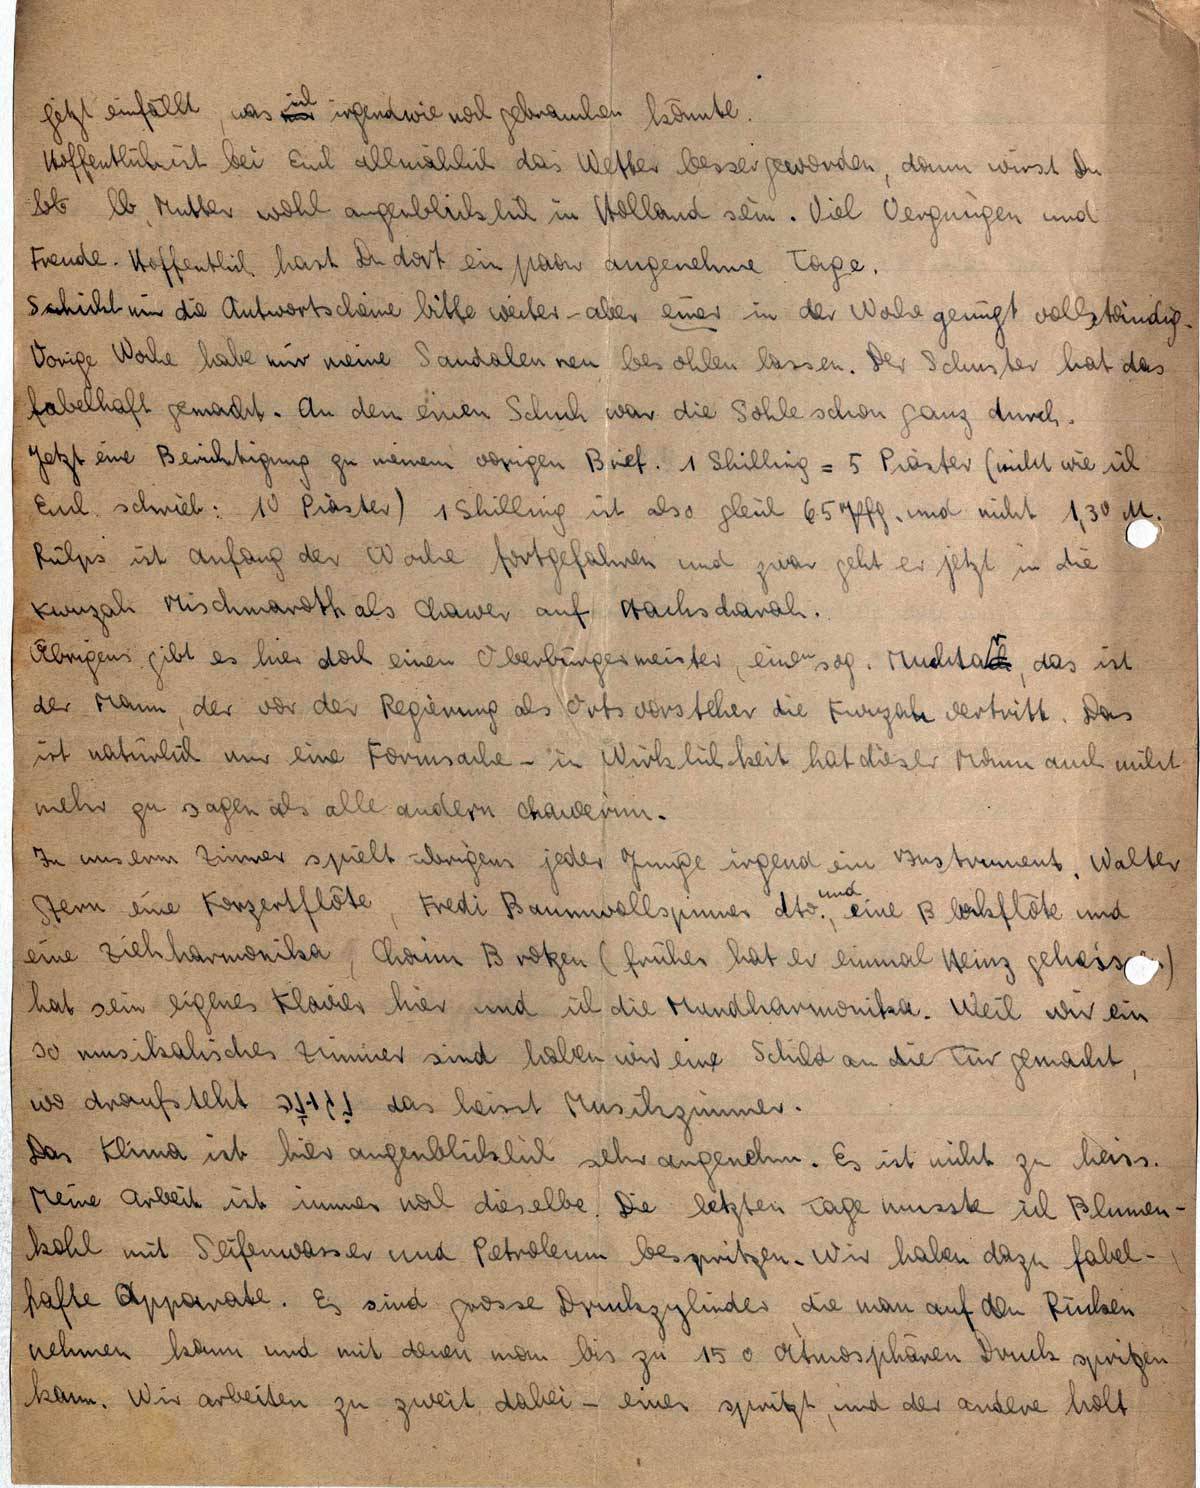 jetzt einfällt, was ich irgendwie noch gebrauchen könnte.
Hoffentlich ist bei Euch allmählich das Wetter besser geworden, dann wirst Du
lb. Mutter wohl augenblicklich in Holland sein. Viel Vergnügen und
Freude. Hoffentlich hast Du dort ein paar angenehme Tage.
Schickt mir die Antwortscheine bitte weiter – aber einer in der Woche genügt vollständig.
Vorige Woche habe mir meine Sandalen neu besohlen lassen. Der Schuster hat das
fabelhaft gemacht. An dem einen Schuh war die Sohle schon ganz durch.
Jetzt eine Berichtigung zu meinem vorigen Brief. 1 Shilling = 5 Piaster (nicht wie ich
Euch schrieb: 10 Piaster) 1 Shilling ist also gleich 65 Pfg. und nicht 1,30 M.
Rülps ist anfang der Woche fortgefahren und zwar geht er jetzt in die
Kwuzah Mischmaroth als Chawer auf Hachscharah.
Übrigens gibt es hier doch einen Oberbürgermeister, einen sog. Muchtar, das ist
der Mann, der vor der Regierung als Ortsvorsteher die Kwuzah vertritt. Das
ist natürlich nur eine Formsache – in Wirklichkeit hat dieser Mann auch nicht
mehr zu sagen als alle andern Chawerim.
In unserm Zimmer spielt übrigens jeder Junge irgend ein Instrument. Walter
Stern eine Konzertflöte, Fredi Baumwollspinner dto., und eine Blockflöte und
eine Ziehharmonika, Chaim Brotzen (früher hat er einmal Heinz geheissen)
hat sein eigenes Klavier hier und ich die Mundharmonika. Weil wir ein
so musikalisches Zimmer sind haben wir eine Schild an die Tür gemacht,
wo draufsteht das heisst Musikzimmer.
Das Klima ist hier augenblicklich sehr angenehm. Es ist nicht zu heiss.
Meine Arbeit ist immer noch dieselbe. Die letzten Tage musste ich Blumen-
kohl mit Seifenwasser und Petroleum bespritzen. Wir haben dazu fabel-
hafte Apparate. Es sind grosse Druckzylinder, die man auf den Rücken
nehmen kann und mit denen man bis zu 150 Atmosphären Druck spritzen
kann. Wir arbeiten zu zweit dabei – einer spritzt, und der andere holt